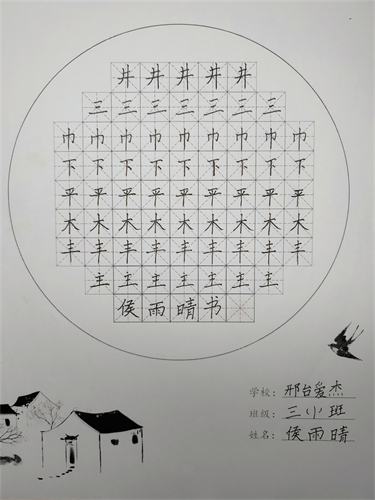 井井井井井
三三三三三三三
巾巾巾巾巾巾巾巾巾
下下下下下下下下下
平平平平平平平平平
木木木木木木木木木
丰丰丰丰丰丰丰丰丰
主主主主主主主
侯雨晴书
学校：邢台爱杰
班级：三小班
姓名：侯雨晴